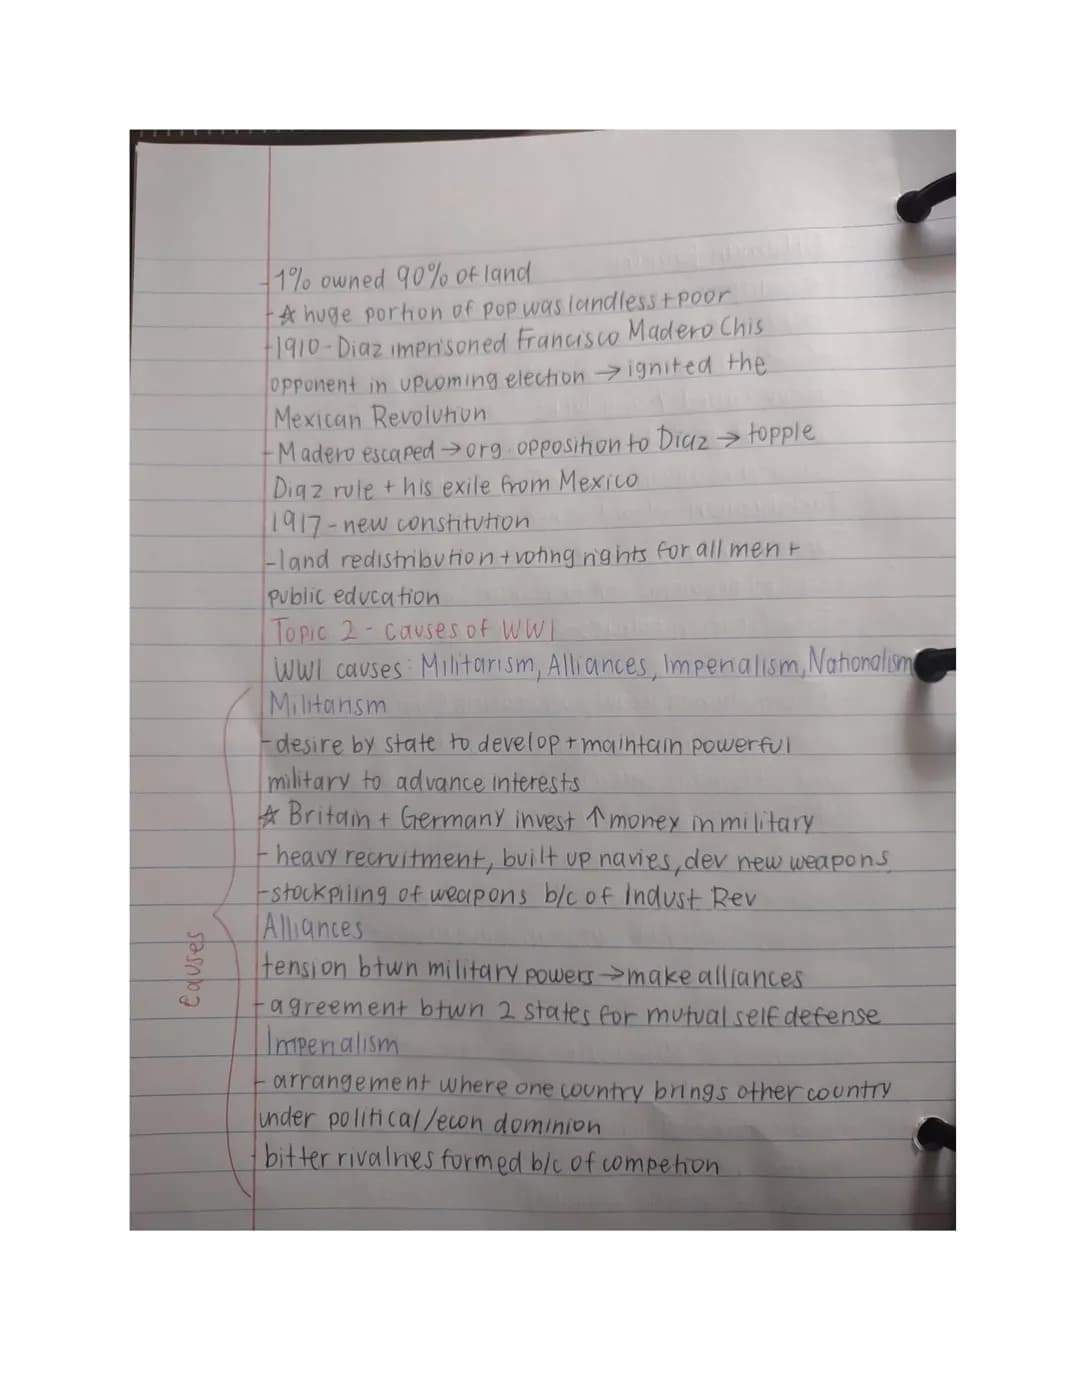 -1% owned 90% of land
-A huge portion of pop was landless + poor
-1910 - Diaz imprisoned Francisco Madero (his
opponent in upcoming election → ignited the
Mexican Revolution
-Madero escaped → org. opposition to Diaz → topple
Diaz rule + his exile from Mexico
1917 - new constitution
-land redistribution + voting rights for all men +
public education
Topic 2 - causes of WW1
WW1 causes: Militarism, Alliances, Imperialism, Nationalism
Militarism
-desire by state to develop + maintain powerful
military to advance interests
☆ Britain + Germany invest ↑ money in military
-heavy recruitment, built up navies, dev new weapons
-stockpiling of weapons b/c of Indust Rev
Alliances
tension btwn military powers → make alliances
-agreement btwn 2 states for mutual self defense
Imperialism
-arrangement where one country brings other country
under political/econ dominion
-bitter rivalries formed b/c of competion
causes